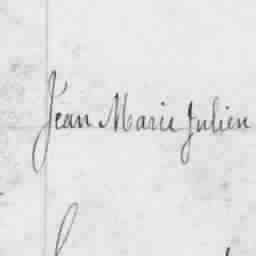 Jéan Marie Julien